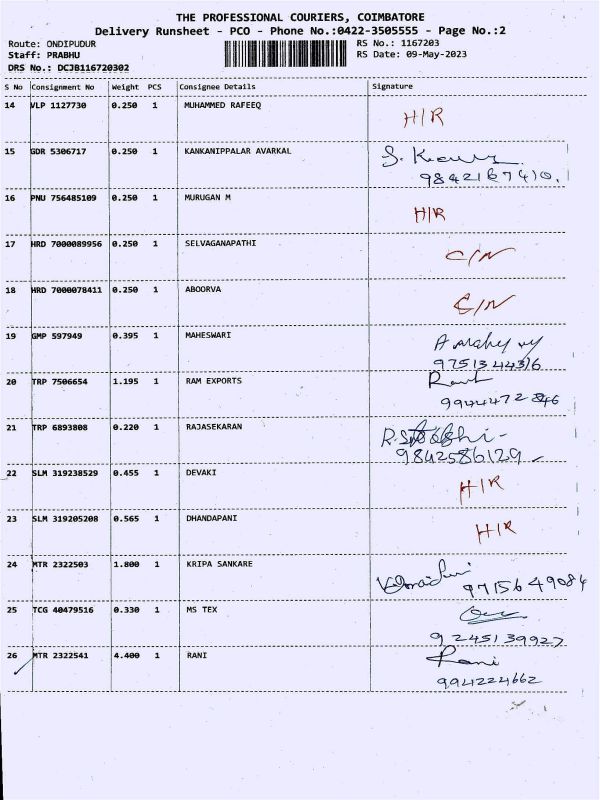 THE PROFESSIONAL COURIERS, COIMBATORE
Delivery Runsheet - PCO - Phone No.:0422-3505555 - Page No.:2
Route: ONDIPUDUR RS No.: 1167203
Staff: PRABHU RS Date: 09-May-2023
DRS No.: DCJB116720302
S No Consignment No Weight PCS Consignee Details Signature
14 VLP 1127730 0.250 1 MUHAMMED RAFEEQ H/R
15 GDR 5306717 0.250 1 KANKANIPPALAR AVARKAL S.
9842167410.
16 PNU 756485109 0.250 1 MURUGAN M H/R
17 HRD 7000089956 0.250 1 SELVAGANAPATHI C/N
18 HRD 7000078411 0.250 1 ABOORVA C/N
19 GMP 597949 0.395 1 MAHESWARI
9751344316
20 TRP 7506654 1.195 1 RAM EXPORTS
9944472846
21 TRP 6893808 0.220 1 RAJASEKARAN
9842586129
22 SLM 319238529 0.455 1 DEVAKI H/R
23 SLM 319205208 0.565 1 DHANDAPANI H/R
24 MTR 2322503 1.800 1 KRIPA SANKARE 9715649084
25 TCG 40479516 0.330 1 MS TEX
9245139927
26 MTR 2322541 4.400 1 RANI Rani
9941224662